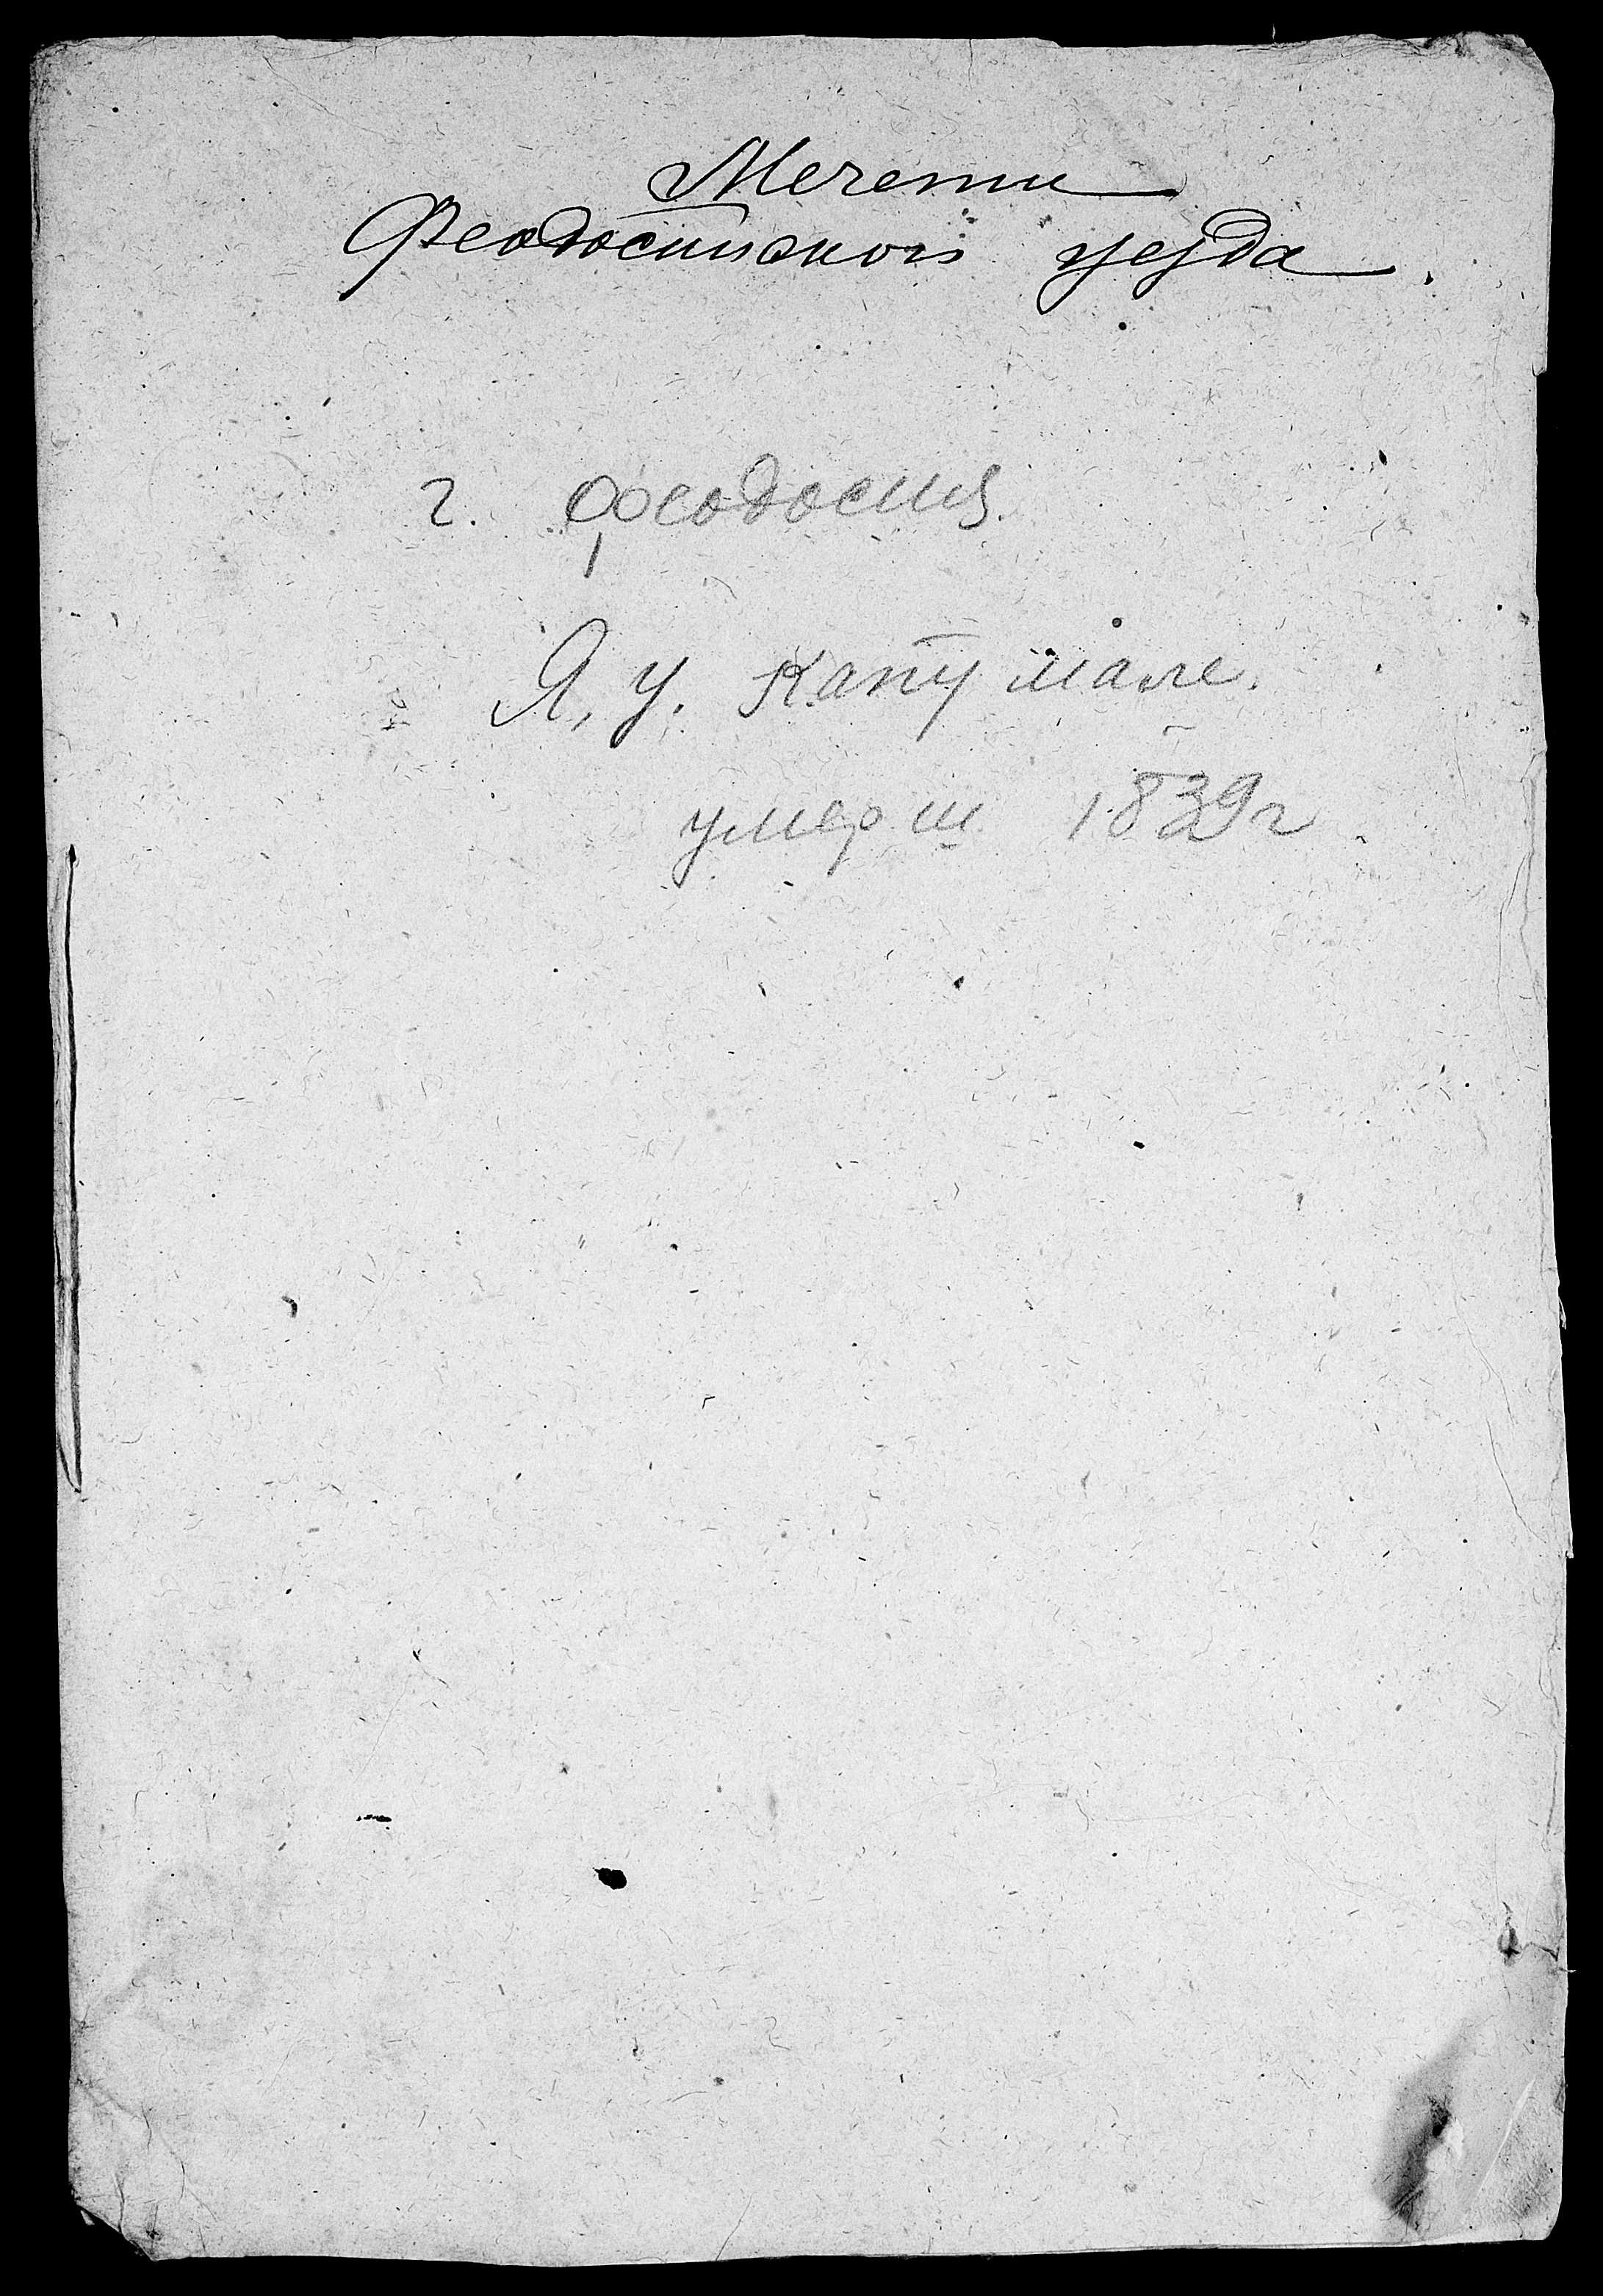 Мечети
Феодосийской уезда
г. Феодосия.
Я, У. Капу мале.
умерш 1839г